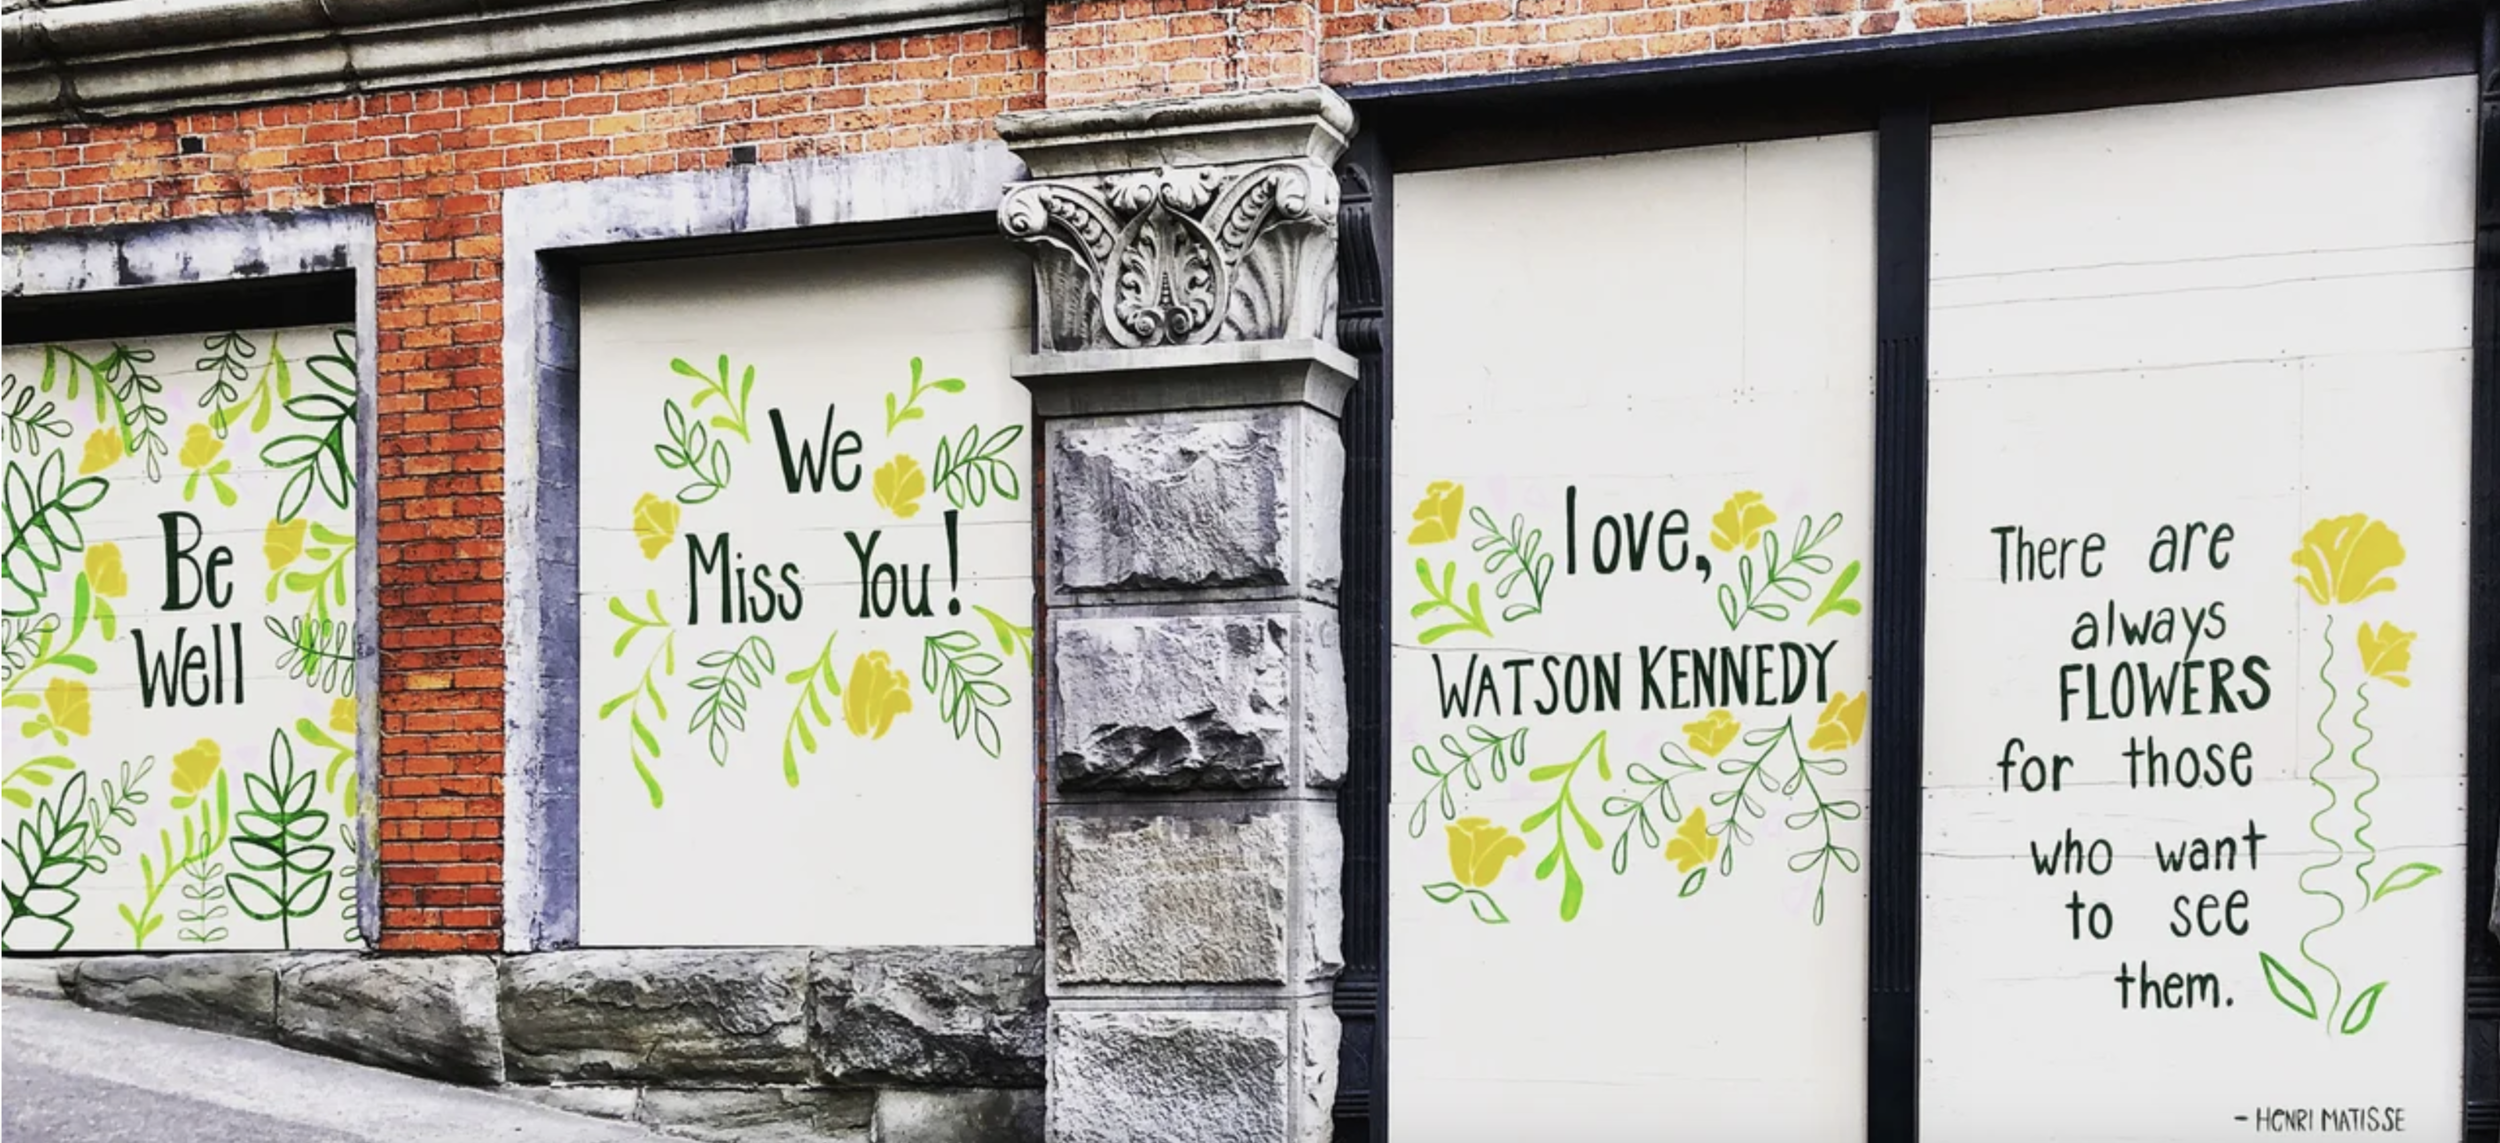 Be
Well
We
Miss You!
love,
WATSON KENNEDY
There are
always
FLOWERS
for those
who want
to see
them.
- HENRI MATISSE